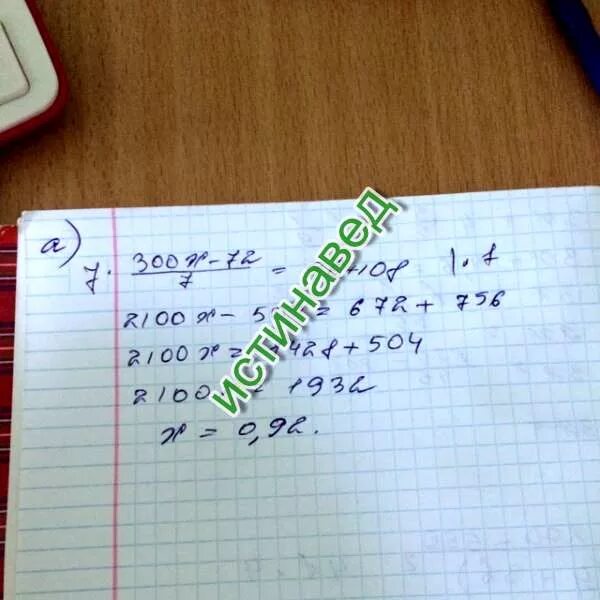 а)
7 · 300x - 72 / 7 = +108 | · 7
2100x - 5 = 672 + 756
2100x = 1428 + 504
2100 1932
x = 0,92.
истинавед